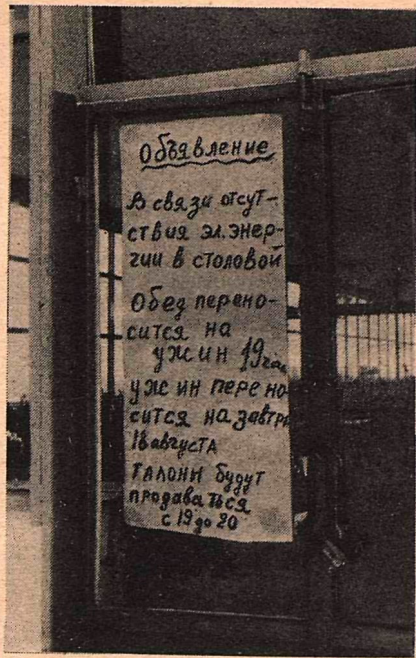 Объявление
В связи отсут-
ствия эл. энер-
гии в столовой
Обед перено-
сится на
ужин 19 час
ужин перено
сится на завтра
18 августа
Талоны будут
продаваться
с 19 до 20